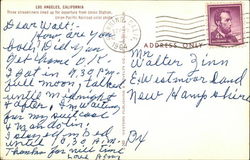 LOS ANGELES, CALIFORNIA
Three streamliners lined up for departure from Union Station,
Union Pacific Railroad
Dear Walt:-
How are you
boy? Did you
get home O.K.
I got in 9,30 P.M.
full moon, talked
until midnight
& after. I'm waiting
for my suitcase
& mandolin!
I stayed in bed
until 10,30 A.M.
Thanks for nice time
Love
ADDRESS ONLY
Mr
Walter Zinn
E. Westmoreland
New Hampshire